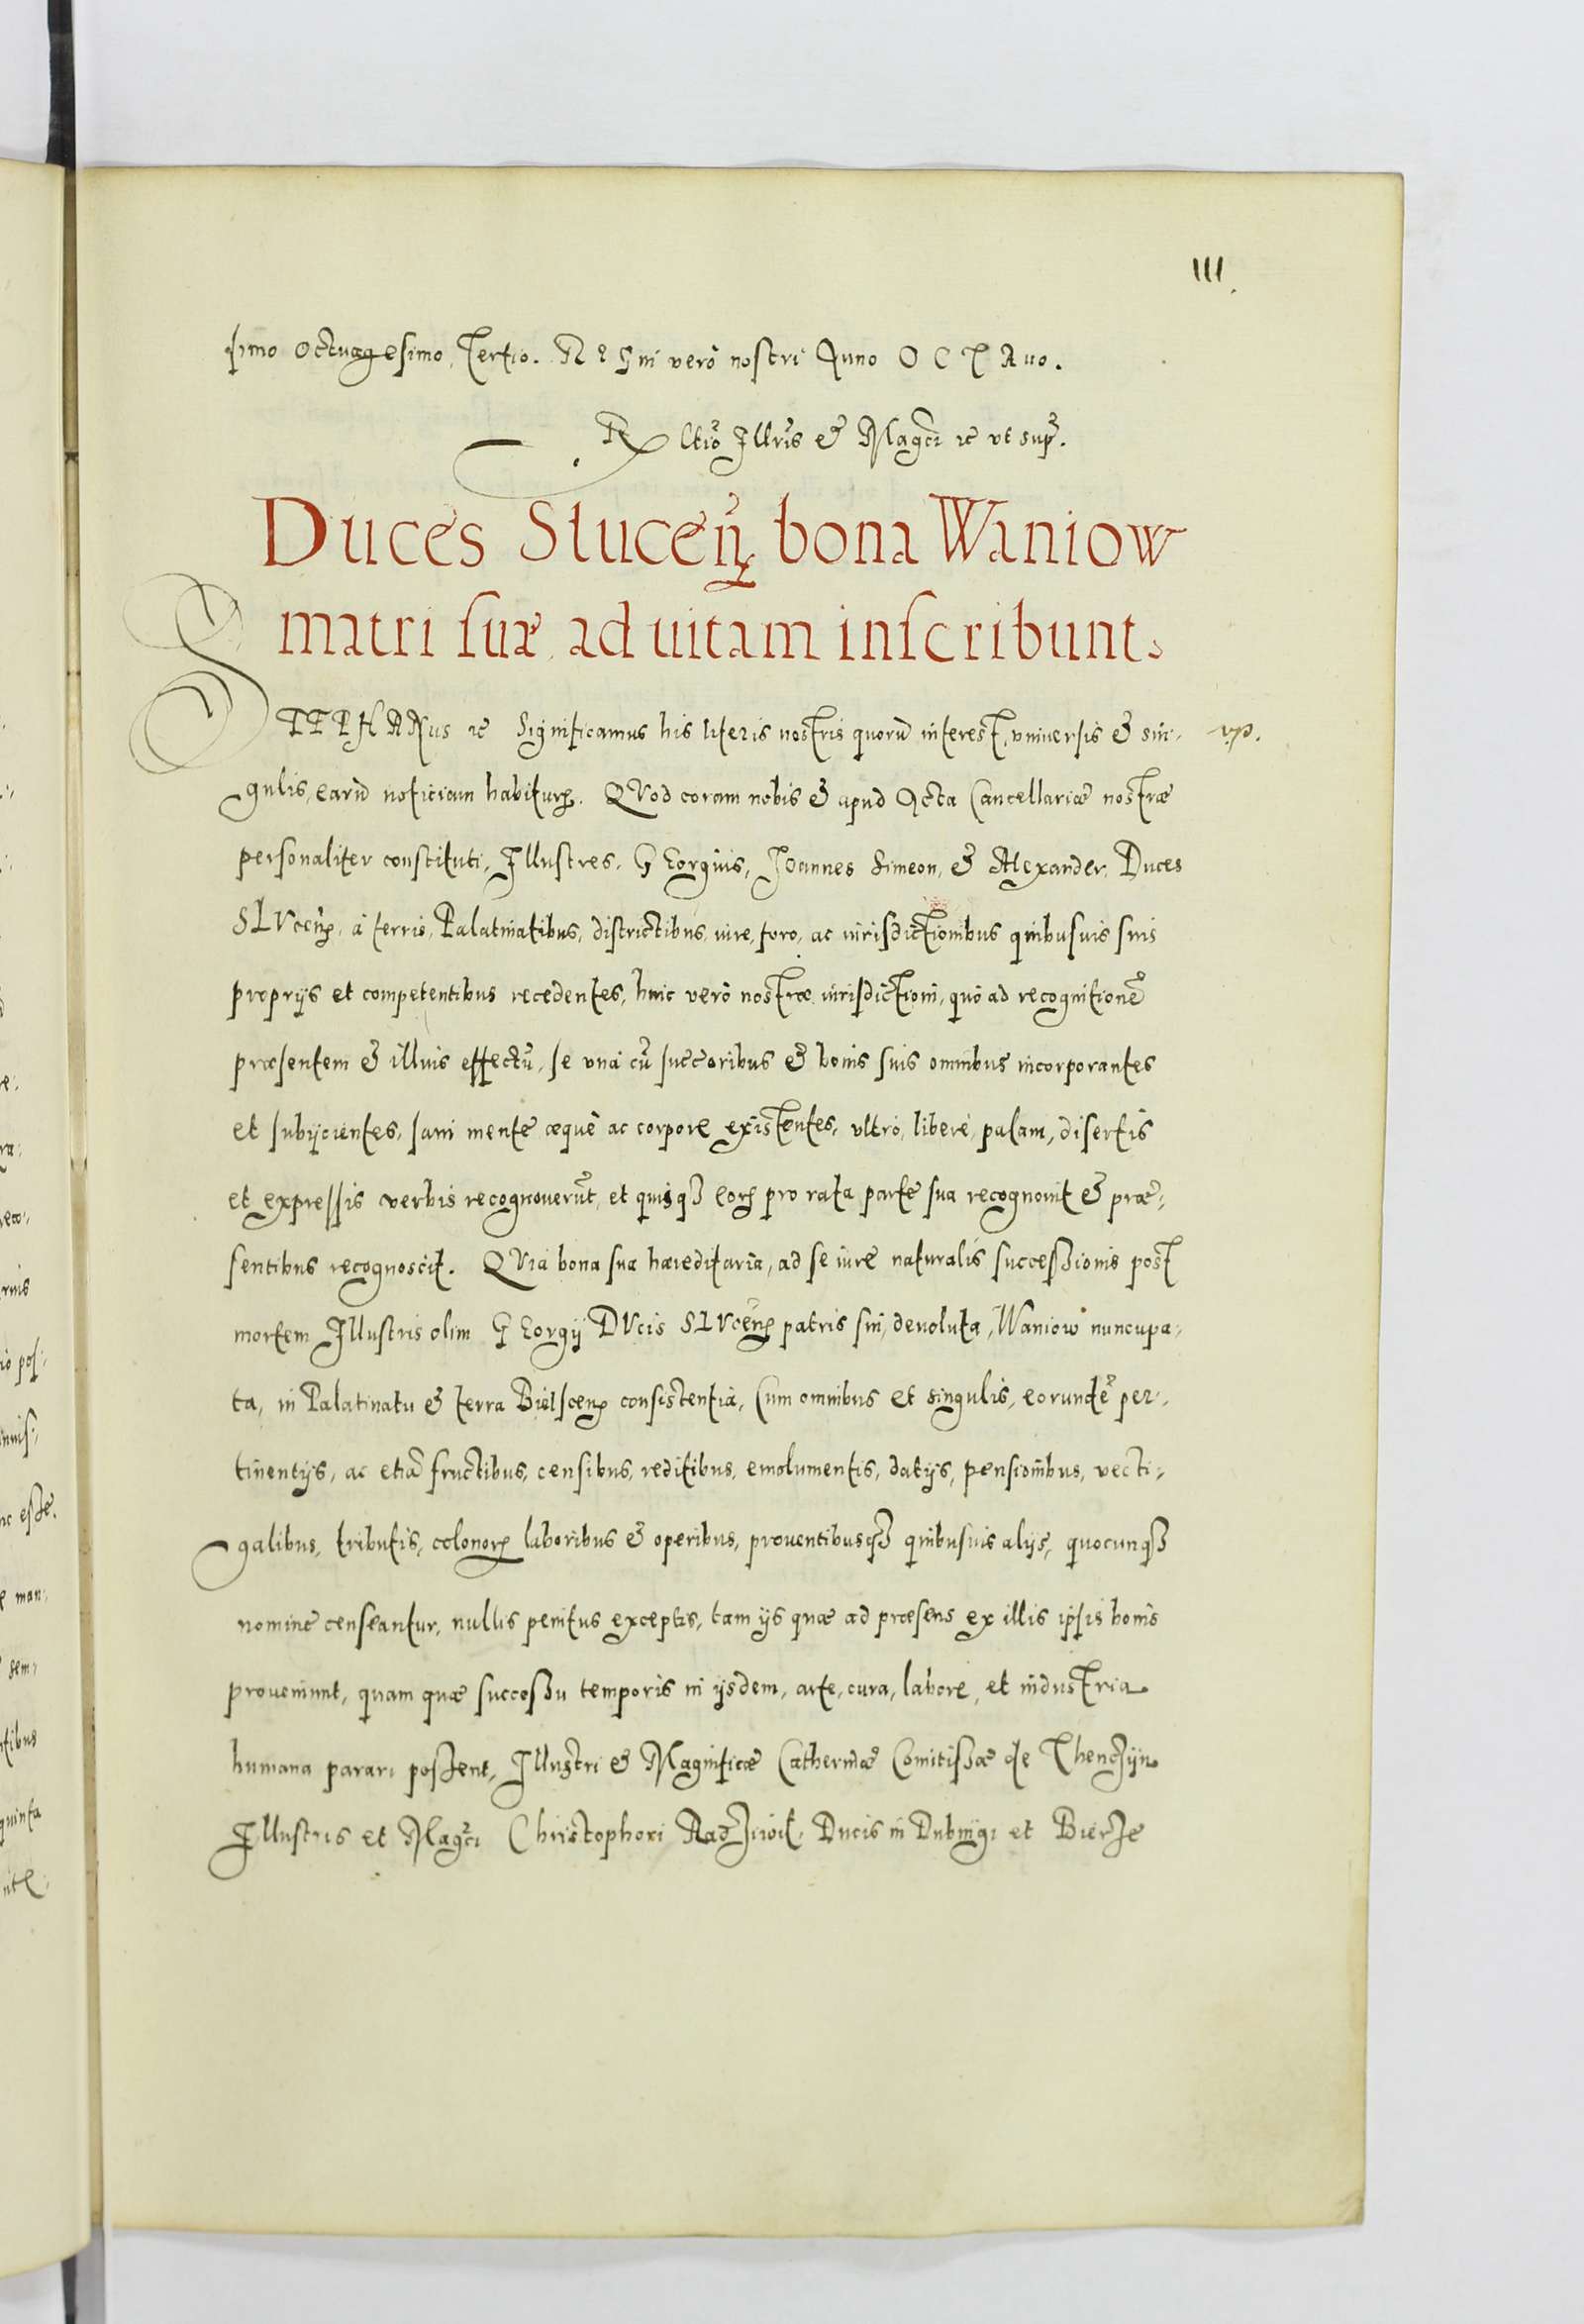 111.
simo octuagesimo, Tertio. REGni verò nostri Anno OCTAuo.
Rltiõ Illris & Magci ꝛc ut sup.
Duces Slucen̄ꝝ bona Waniow
matri suæ, ad uitam inscribunt.
STEPHANus ꝛc Significamus his literis nostris quorũ interest, vniuersis & sin-
gulis, earũ noticiam habiturꝝ. QVod coram nobis & apud Acta Cancellariæ nostræ
personaliter constituti, Illustres, GEorgius, Joannes Simeon, & Alexander, Duces
SLVcenꝝ, à terris, Palatinatibus, districtibus, iure, foro, ac iurisdictionibus quibusuis suis
proprijs et competentibus recedentes, huic verò nostræ iurisdictioni, quò ad recognitionẽ
præsentem & illius effectũ, se vnà cũ succoribus & bonis suis omnibus incorporantes
et subijcientes, sani mente æquè ac corpore existentes, vltrò, liberè, palam, disertis
et expressis verbis recognouerũt, et quisqꝫ eorꝝ pro rata parte sua recognouit & præ-
sentibus recognoscit. QVia bona sua hæreditaria, ad se iure naturalis successionis post
mortem Illustris olim GEorgij DVcis SLVcenꝝ patris sui, deuoluta, Waniow nuncupa-
ta, in Palatinatu & terra Bielscenꝝ consistentia, Cum omnibus et singulis, eorundẽ per-
tinentijs, ac etiã fructibus, censibus, reditibus, emolumentis, datijs, pensionibus, vecti-
galibus, tributis, colonorꝝ laboribus & operibus, prouentibusqꝫ quibusuis alijs, quocunqꝫ
nomine censeantur, nullis penitus exceptis, tam ijs quæ ad præsens ex illis ipsis bonis
proueniunt, quam quæ successu temporis in ijsdem, arte, cura, labore, et industria
humana parari possent, Illustri & Magnificæ Catherinæ Comitissæ de Thenczijn
Illustris et Magci Christophori Radziwil, Ducis in Dubingi et Bierze